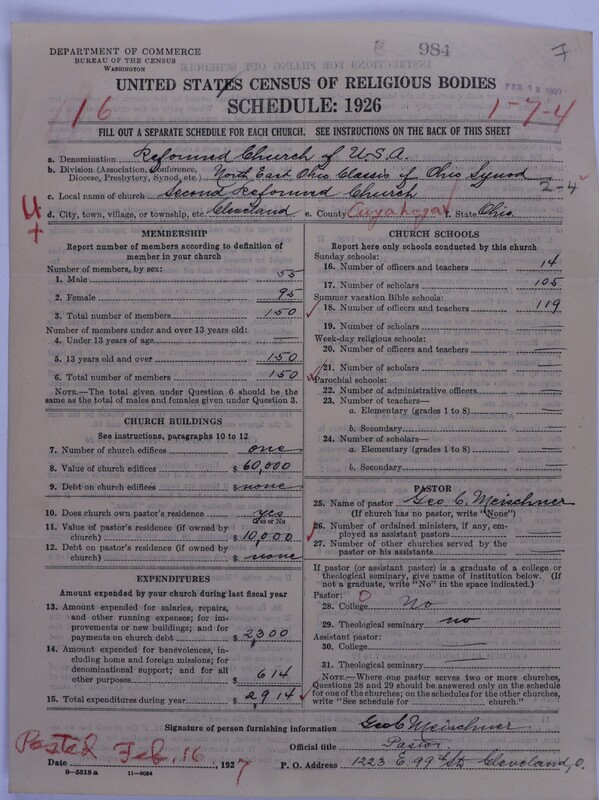 984
7
DEPARTMENT OF COMMERCE
BUREAU OF THE CENSUS
WASHINGTON
FEB 18 1927
UNITED STATES CENSUS OF RELIGIOUS BODIES
16
SCHEDULE: 1926
1-7-4
FILL OUT A SEPARATE SCHEDULE FOR EACH CHURCH. SEE INSTRUCTIONS ON THE BACK OF THIS SHEET
a. Denomination Reformed Church of U.S.A.
b. Division (Association, Conference, Diocese, Presbytery, Synod, etc.) North East Ohio Classis of Ohio Synod
2-4
c. Local name of church Second Reformed Church
d. City, town, village, or township, etc. Cleveland e. County Cuyahoga f. State Ohio.
MEMBERSHIP
Report number of members according to definition of member in your church
Number of members, by sex:
1. Male 55
2. Female 95
3. Total number of members 150
Number of members under and over 13 years old:
4. Under 13 years of age —
5. 13 years old and over 150
6. Total number of members 150
NOTE.—The total given under Question 6 should be the same as the total of males and females given under Question 3.
CHURCH BUILDINGS
See instructions, paragraphs 10 to 12
7. Number of church edifices one
8. Value of church edifices $ 60,000
9. Debt on church edifices $ none
10. Does church own pastor's residence? yes
Yes or No
11. Value of pastor's residence (if owned by church) $ 10,000
12. Debt on pastor's residence (if owned by church) $ none
EXPENDITURES
Amount expended by your church during last fiscal year
13. Amount expended for salaries, repairs, and other running expenses; for improvements or new buildings; and for payments on church debt $ 2,300
14. Amount expended for benevolences, including home and foreign missions; for denominational support; and for all other purposes $ 614
15. Total expenditures during year $ 2,914
CHURCH SCHOOLS
Report here only schools conducted by this church
Sunday schools:
16. Number of officers and teachers 14
17. Number of scholars 105
Summer vacation Bible schools:
18. Number of officers and teachers 119
19. Number of scholars —
Week-day religious schools:
20. Number of officers and teachers —
21. Number of scholars —
Parochial schools:
22. Number of administrative officers —
23. Number of teachers—
a. Elementary (grades 1 to 8) —
b. Secondary —
24. Number of scholars—
a. Elementary (grades 1 to 8) —
b. Secondary —
PASTOR
25. Name of pastor Geo C. Meischner
(If church has no pastor, write "None")
26. Number of ordained ministers, if any, employed as assistant pastors —
27. Number of other churches served by the pastor or his assistants —
If pastor (or assistant pastor) is a graduate of a college or theological seminary, give name of institution below. (If not a graduate, write "No" in the space indicated.)
Pastor: 0
28. College No
29. Theological seminary no
Assistant pastor:
30. College —
31. Theological seminary —
NOTE.—Where one pastor serves two or more churches, Questions 28 and 29 should be answered only on the schedule for one of the churches; on the schedules for the other churches, write "See schedule for ________ church."
Signature of person furnishing information Geo C Meischner
Posted Feb. 16
Official title Pastor
Date , 1927
P. O. Address 1223 E. 99th St. Cleveland, O.
8-5518a 11-9084